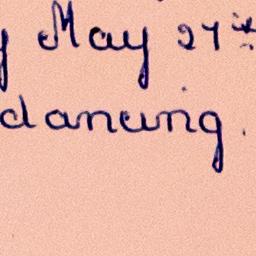 y May 27th
dancing.